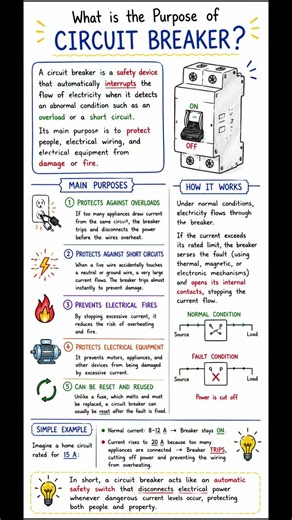 What is the Purpose of
CIRCUIT BREAKER?
A circuit breaker is a safety device
that automatically interrupts the
flow of electricity when it detects
an abnormal condition such as an
overload or a short circuit.
Its main purpose is to protect
people, electrical wiring, and
electrical equipment from
damage or fire.
ON
OFF
MAIN PURPOSES
1 PROTECTS AGAINST OVERLOADS
If too many appliances draw current
from the same circuit, the breaker
trips and disconnects the power
before the wires overheat.
2 PROTECTS AGAINST SHORT CIRCUITS
When a live wire accidentally touches
a neutral or ground wire, a very large
current flows. The breaker trips almost
instantly to prevent damage.
3 PREVENTS ELECTRICAL FIRES
By stopping excessive current, it
reduces the risk of overheating
and fire.
4 PROTECTS ELECTRICAL EQUIPMENT
It prevents motors, appliances, and
other devices from being damaged
by excessive current.
5 CAN BE RESET AND REUSED
Unlike a fuse, which melts and must
be replaced, a circuit breaker can
usually be reset after the fault is fixed.
HOW IT WORKS
Under normal conditions,
electricity flows through
the breaker.
If the current exceeds
its rated limit, the breaker
serses the fault (using
thermal, magnetic, or
electronic mechanisms)
and opens its internal
contacts, stopping the
current flow.
NORMAL CONDITION
Source
Load
FAULT CONDITION
Source
Load
Power is cut off
SIMPLE EXAMPLE
Imagine a home circuit
rated for 15 A:
Normal current: 8-12 A → Breaker stays ON.
Current rises to 20 A because too many
appliances are connected → Breaker TRIPS,
cutting off power and preventing the wiring
from overheating.
In short, a circuit breaker acts like an automatic
safety switch that disconnects electrical power
whenever dangerous current levels occur, protecting
both people and property.